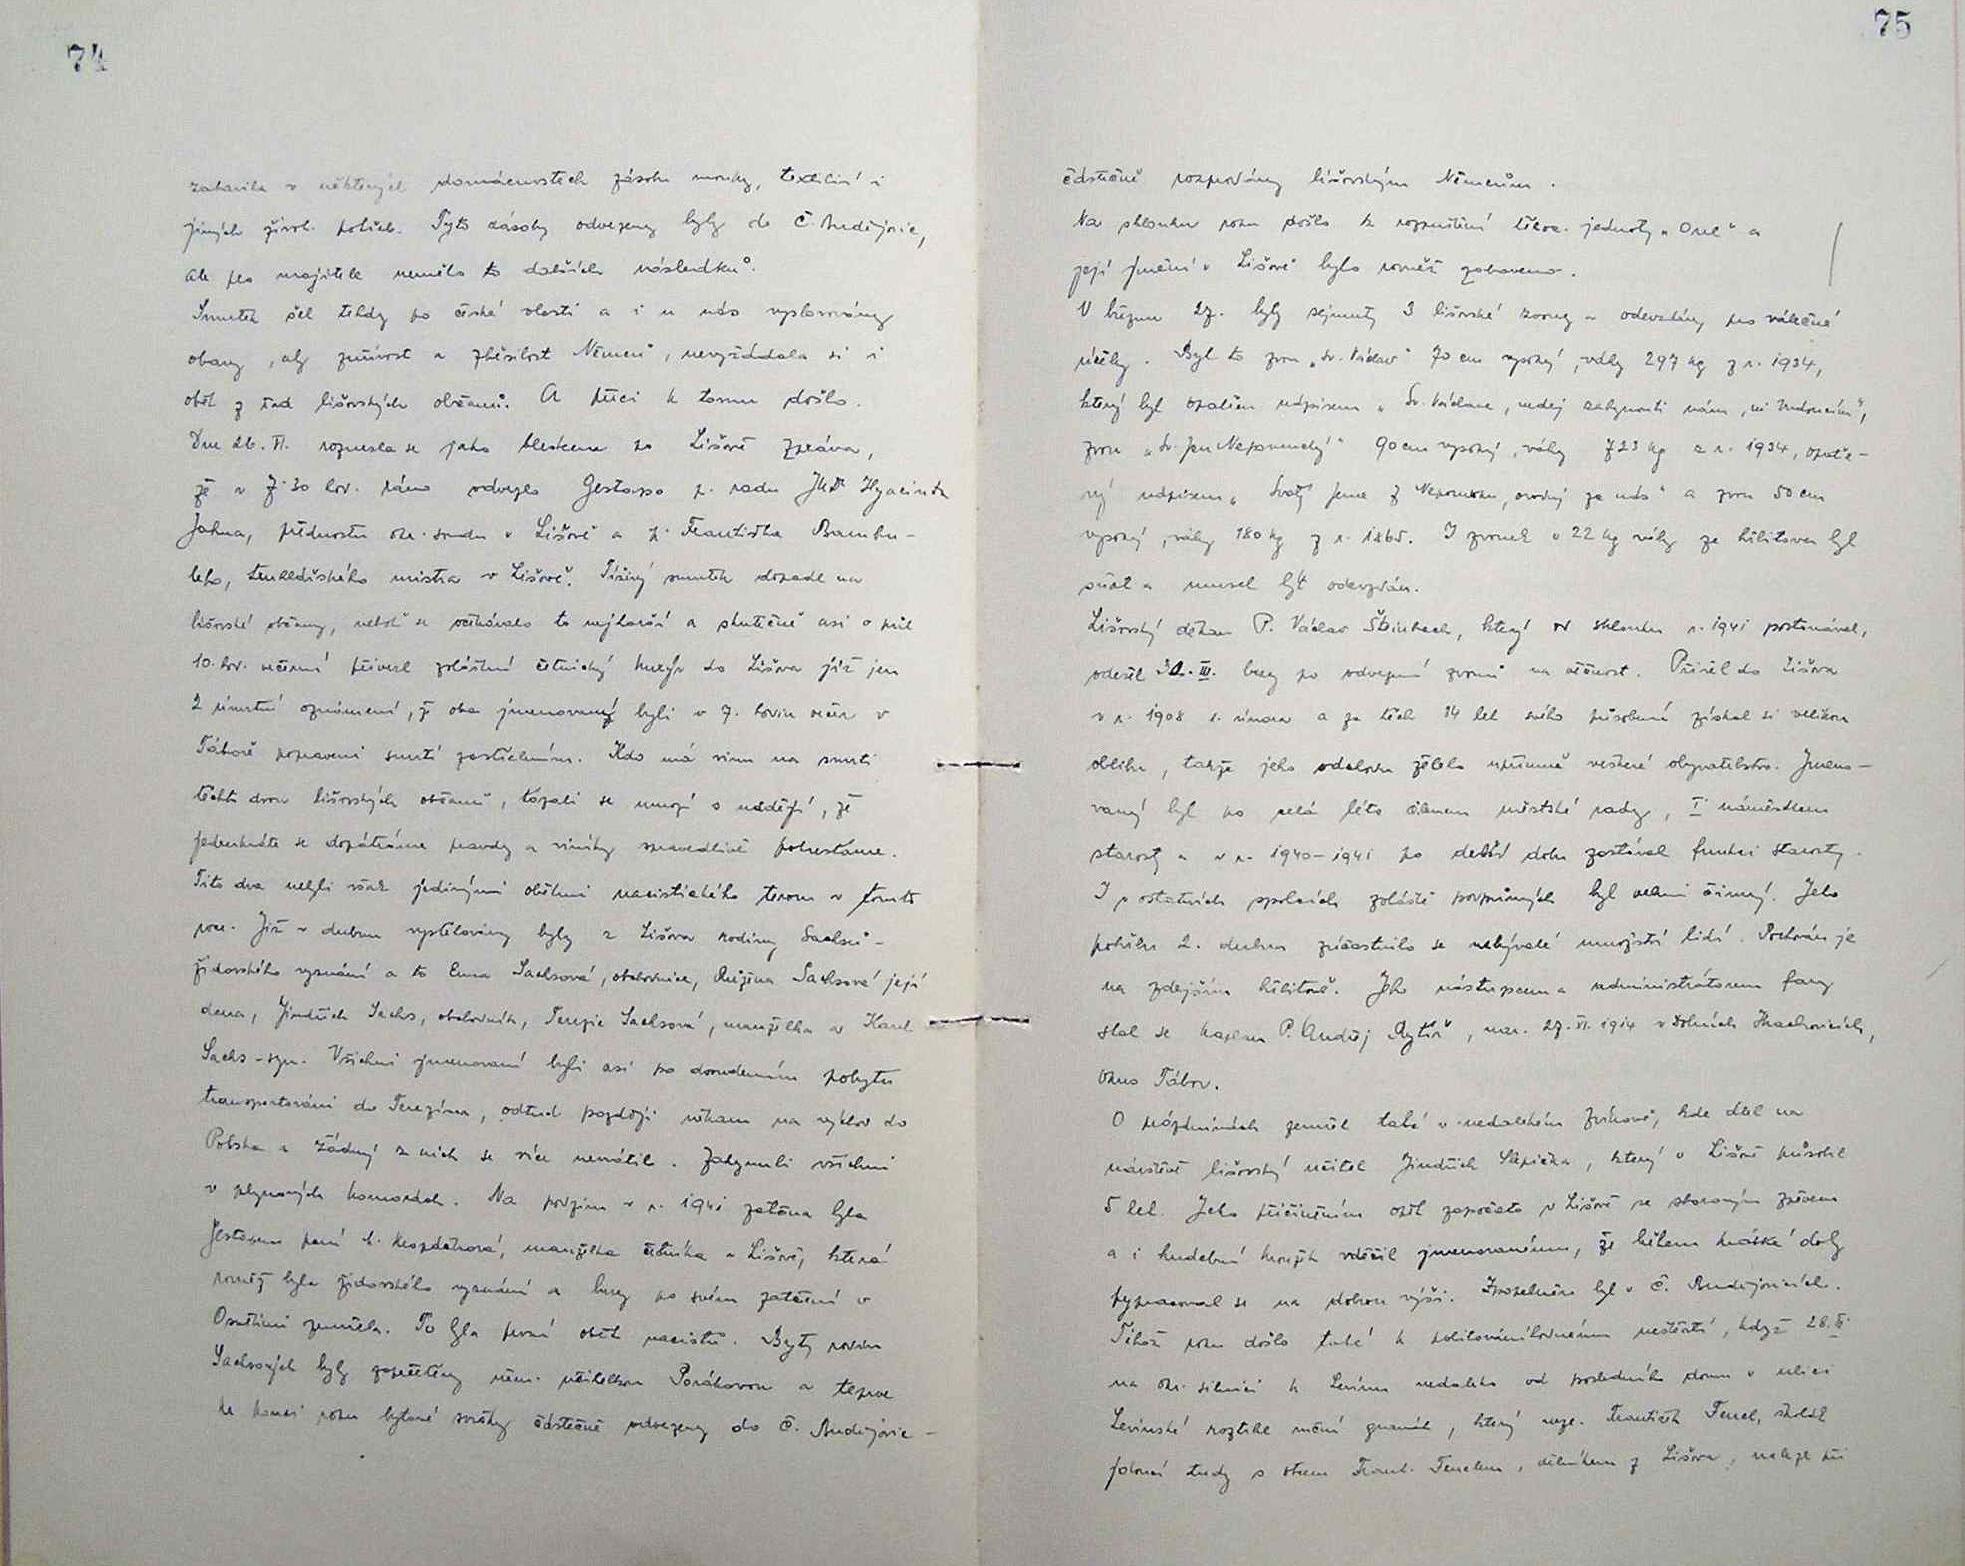 74
zabavila v některých domácnostech zásobu mouky, textilií i
jiných život. potřeb. Tyto zásoby odvezeny byly do Č. Budějovic,
ale pro majitele nemělo to dalších následků.
Smutek šel tehdy po české vlasti a i u nás vyslovovány
obavy, aby zuřivost a zběsilost Němců, nevyžádala si i
oběť z řad lišovských občanů. A přeci k tomu došlo.
Dne 26. VI. roznesla se jako bleskem po Lišově zpráva,
že v 7·30 hod. ráno odvezlo Gestapo p. radu JUDr Hyacinta
Jahna, přednostu okr. soudu v Lišově a p. Františka Bambu-
leho, truhlářského mistra v Lišově. Tíživý smutek dopadl na
lišovské občany, neboť se očekávalo to nejhorší a skutečně asi o půl
10. hod. večerní přivezl zvláštní četnický kurýr do Lišova již jen
2 úmrtní oznámení, že oba jmenovaný byli v 7. hodin večer v
Táboře popraveni smrtí zastřelením. Kdo má vinu na smrti
těchto dvou lišovských občanů, tázali se mnozí s nadějí, že
jedenkráte se dopátráme pravdy a viníky spravedlivě potrestáme.
Tito dva nebyli však jedinými oběťmi nacistického teroru v tomto
roce. Již v dubnu vystěhovány byly z Lišova rodiny Sachsů -
židovského vyznání a to Ema Sachsová, obchodnice, Růžena Sachsová její
dcera, Jindřich Sachs, obchodník, Terezie Sachsová, manželka a Karel
Sachs - syn. Všichni jmenovaní byli asi po dvoudenním pobytu
transportováni do Terezína, odtud později někam na východ do
Polska a žádný z nich se více nevrátil. Zahynuli všichni
v plynových komorách. Na podzim v r. 1941 zatčena byla
Gestapem paní k. manželka četníka v Lišově, která
rovněž byla židovského vyznání a brzy po svém zatčení v
Osvětimi zemřela. To byla první oběť nacistů. Byty rodin
Sachsových byly zapečetěny něm. učitelkou a teprve
ke konci roku bytové svršky částečně odvezeny do Č. Budějovic -
75
částečně rozprodány lišovským Němcům.
Na sklonku roku došlo k rozpuštění tělov. jednoty „Orel“ a
její jmění v Lišově bylo rovněž zabaveno.
V březnu 27. byly sejmuty 3 lišovské zvony a odevzdány pro válečné
účely. Byl to zvon „sv. Václav“ 70 cm vysoký, váhy 297 kg z r. 1934,
který byl opatřen nápisem „Sv. Václave, nedej zahynouti nám, ni budoucím“,
zvon „Sv. Jan Nepomucký“ 90 cm vysoký, váhy 723 kg z r. 1934, opatře-
ný nápisem „Svatý Jene z Nepomuku, oroduj za nás“ a zvon 50 cm
vysoký, váhy 180 kg z r. 1865. I zvonek o 22 kg váhy ze hřbitova byl
sňat a musel být odevzdán.
Lišovský děkan P. Václav Šteinbach, který od sklonku r. 1941 postonával,
odešel 30. III. brzy po odvezení zvonů na věčnost. Přišel do Lišova
v r. 1908 1. února a za těch 34 let svého působení získal si velikou
oblibu, takže jeho odchodu želelo upřímně veškeré obyvatelstvo. Jmeno-
vaný byl po celá léta členem městské rady, I. náměstkem
starosty a v r. 1940-1941 po delší dobu zastával funkci starosty.
I v ostatních spolcích zvláště podpůrných byl velmi činný. Jeho
pohřbu 2. dubna zúčastnilo se nebývalé množství lidí. Pochován je
na zdejším hřbitově. Jeho nástupcem a administrátorem fary
stal se kaplan P. Ondřej Rytíř, nar. 27. VI. 1914 v Dolních Hrachovicích,
okres Tábor.
O prázdninách zemřel také v nedalekém Zvíkově, kde dlel na
návštěvě lišovský učitel Jindřich Slepička, který v Lišově působil
5 let. Jeho přičiněním opět započato v Lišově se sborovým zpěvem
a i hudební kroužek vděčil jmenovanému, že během krátké doby
vypracoval se na dobrou výši. Zpopelněn byl v Č. Budějovicích.
Téhož roku došlo také k politováníhodnému neštěstí, když 28. II.
na okr. silnici k Levínu nedaleko od posledního domu v ulici
Levínské roztrhl ruční granát, který nez. František Tencl, školák
jdoucí tudy s otcem Frant. Tenclem, dělníkem z Lišova, nalezl při